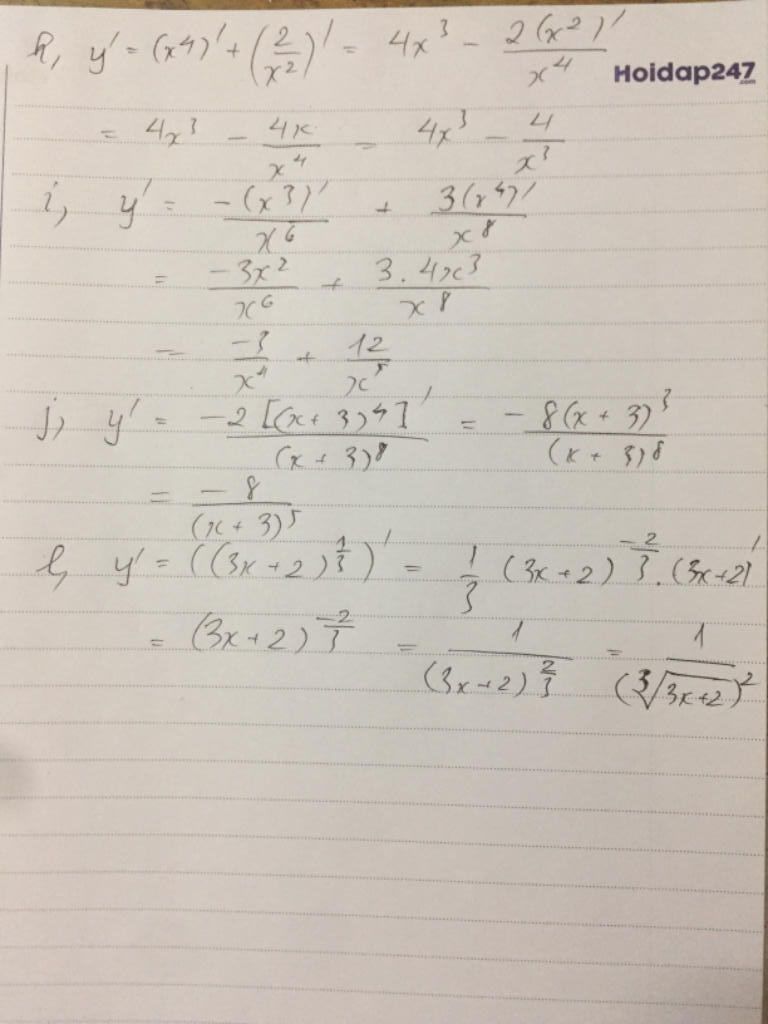 h, y' = (x⁴)' + (2/x²)' = 4x³ - 2(x²)'/x⁴
Hoidap247.com
= 4x³ - 4x/x⁴ = 4x³ - 4/x³
i, y' = -(x³)'/x⁶ + 3(x⁴)'/x⁸
= -3x²/x⁶ + 3.4x³/x⁸
= -3/x⁴ + 12/x⁵
j, y' = -2[(x+3)⁴]'/(x+3)⁸ = -8(x+3)³/(x+3)⁸
= -8/(x+3)⁵
l, y' = ((3x+2)^(1/3))' = 1/3 (3x+2)^(-2/3) . (3x+2)'
= (3x+2)^(-2/3) = 1/(3x+2)^(2/3) = 1/(∛(3x+2))²